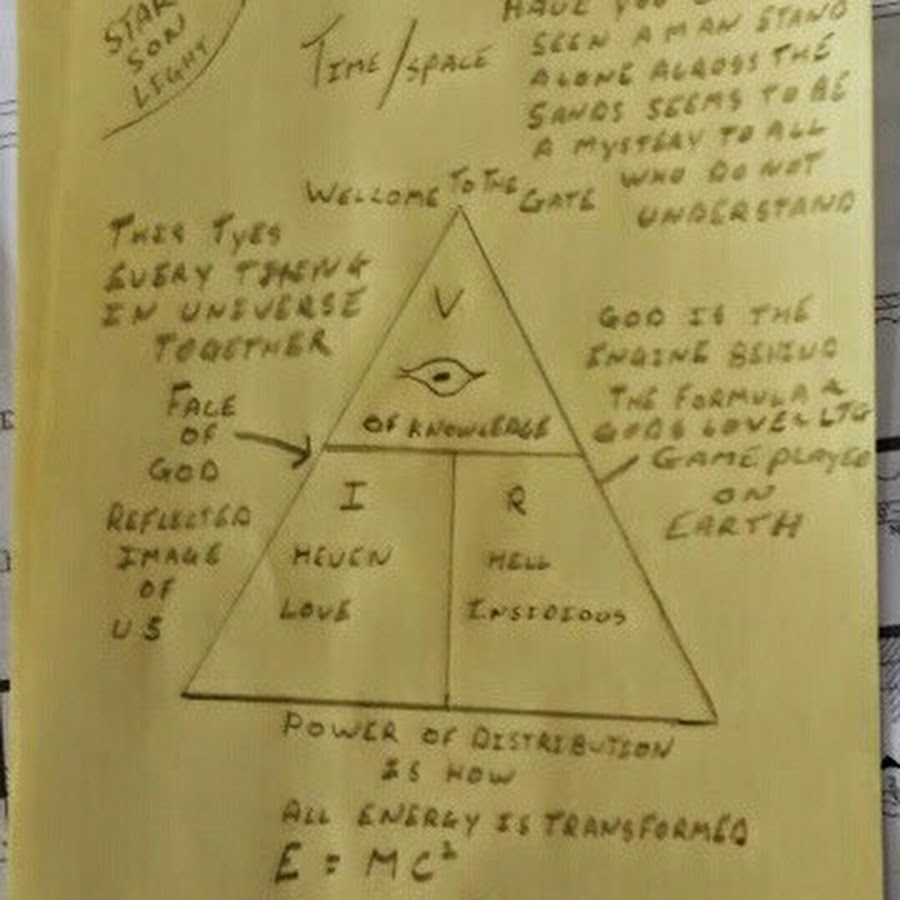 STAR
SON
LIGHT
TIME/SPACE
HAVE YOU
SEEN A MAN STAND
ALONE ACROSS THE
SANDS SEEMS TO BE
A MYSTERY TO ALL
WHO DO NOT
UNDERSTAND
WELLCOME TO THE GATE
THES TYES
EVERY THENG
IN UNEVERSE
TOGETHER
FACE
OF
GOD
REFLECTED
IMAGE
OF
US
V
OF KNOWLEDGE
I
HEVEN
LOVE
R
HELL
INSIDIOUS
GOD IS THE
ENGINE BEHIND
THE FORMULA &
GODS LOVE
GAME PLAYED
ON
EARTH
POWER OF DISTRIBUTION
IS HOW
ALL ENERGY IS TRANSFORMED
E = MC²